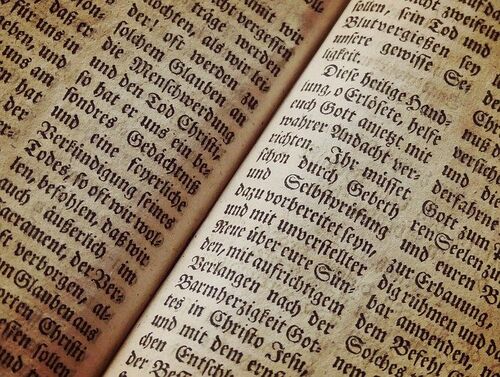 daß er
für uns in
uns am
en hat
der
mit wir
nicht vergessen
träge werden
mochten, als wir lei-
der! oft werden
solchem Glauben an
die Menschwerdung
und den Tod Christi,
so hat er uns ein be-
sondres Gedächtniß
und eine feyerliche
Verkündigung seines
Todes, so oft wir wol-
len, befohlen, daß wir
auch äußerlich im
Sacrament, der Ver-
al-
Glauben aus
Christi
essen sollen
sollen, sein Tod und
Blutvergießen sey
unsere gewisse Se-
ligkeit.
Diese heilige Hand-
lung, o Erlösete, helfe
euch Gott anjetzt mit
wahrer Andacht ver-
richten. Ihr müsset
schon durch Gebeth
und Selbstprüfung
dazu vorbereitet seyn,
und mit unverstellter
Reue über eure Sün-
den, mit aufrichtigem
Verlangen nach der
Barmherzigkeit Got-
tes in Christo Jesu,
und mit dem
chen
der
Gott zum
ren Seelen
und euren
zur Erbauung.
dig rühmen und
bar anwenden,
dem Befehl
Solches